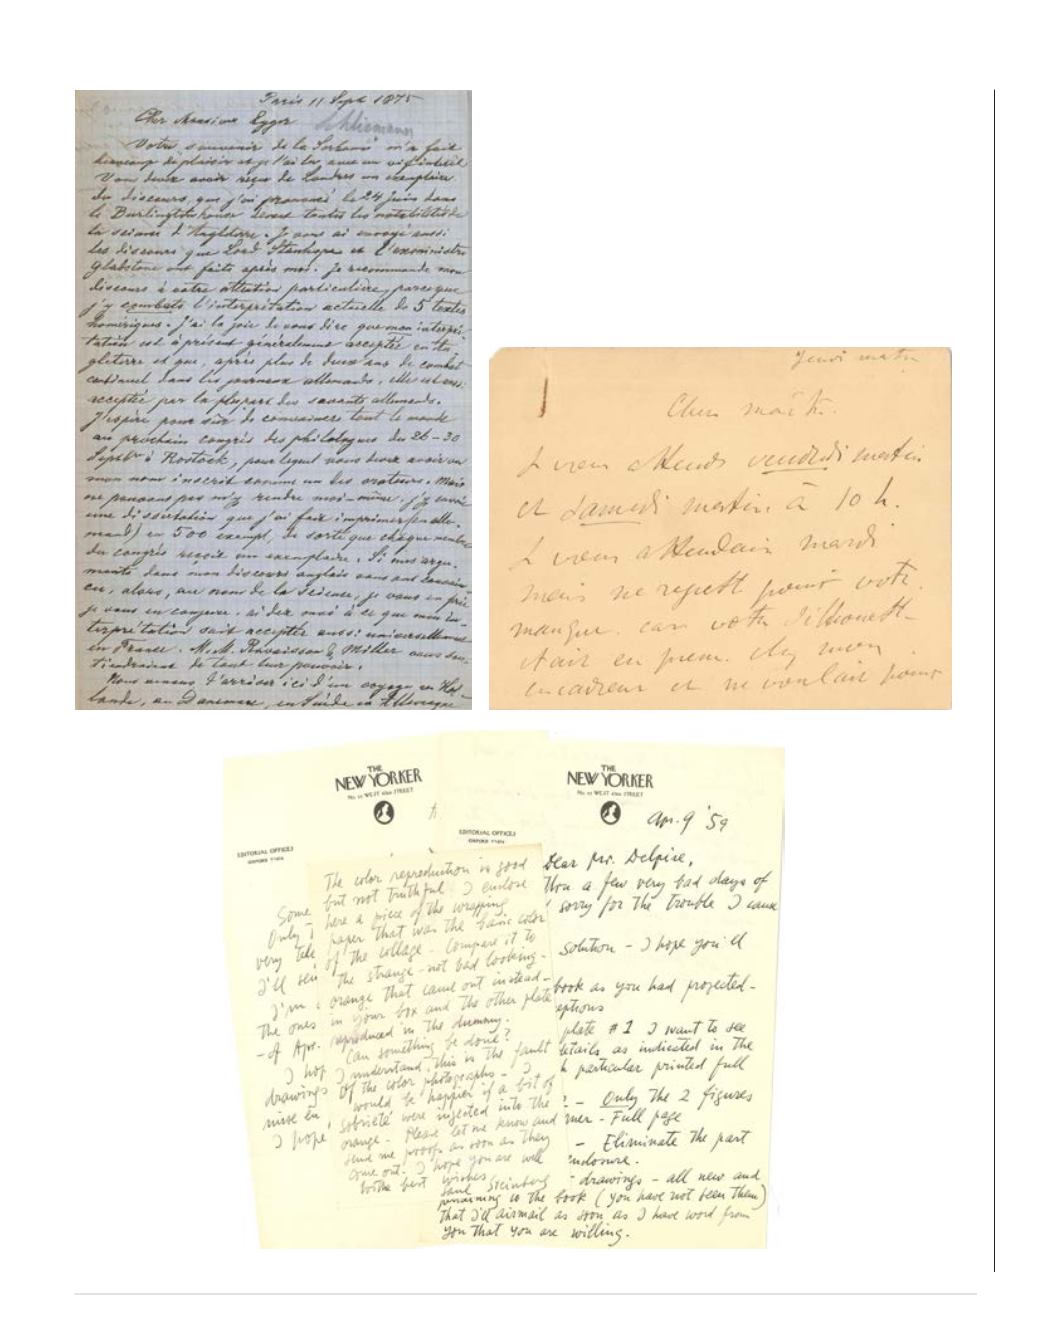 Paris 11 Sept 1875
Cher Monsieur Egger
Schliemann
Votre souvenir de la Sorbonne m'a fait
beaucoup de plaisir et je l'ai lu avec un vif intérêt
Vous devez avoir reçu de Londres un exemplaire
du discours, que j'ai prononcé le 24 Juin dans
le Burlingtonhouse devant toutes les notabilités de
la science d'Angleterre. Je vous ai envoyé aussi
les discours que Lord Stanhope et l'exministre
Gladstone ont faits après moi. Je recommande mon
discours à votre attention particulière, parceque
j'y combats l'interprétation actuelle de 5 textes
homériques. J'ai la joie de vous dire que mon interpré-
tation est à présent généralement acceptée en An
gleterre et que, après plus de deux ans de combat
continuel dans les journaux allemands, elle est aussi
acceptée par la plupart des savants allemands.
J'espère pour sûr de convaincre tout le monde
au prochain congrès des philologues du 26-30
Septbr à Rostock, pour lequel vous devez avoir vu
mon nom inscrit comme un des orateurs. Mais
ne pouvant pas m'y rendre moi-même, j'y envoie
une dissertation que j'ai fait imprimer (en alle-
mand) en 500 exempl, de sorte que chaque membre
du congrès reçoit un exemplaire. Si mes argu-
ments dans mon discours anglais vous ont convain
cu, alors, au nom de la science, je vous en prie
je vous en conjure, aidez moi à ce que mon in-
terprétation soit acceptée aussi universellement
en France. M.M. Ravaisson & Miller vous sou-
tiendraient de tout leur pouvoir.
Nous venons d'arriver ici d'un voyage en Hol-
lande, au Danemarc, en Suède en Allemagne
Jeudi matin
Cher maître.
Je vous attends vendredi matin
et Samedi matin à 10 h.
Je vous attendais mardi
mais ne regrett point votre
manque. car votre Silhouett-
était en chez mon
encadreur et ne voulait point
THE
NEW YORKER
No. 25 WEST 43rd STREET
EDITORIAL OFFICES
OXFORD
Some
Only
very
I'll
I'm
the ones
- of Apr.
I hop
drawings
I hope
The color reproduction is good
but not truthful I enclose
here a piece of the wrapping
paper that was the basic color
of the collage - Compare it to
the strange - not bad looking -
orange that came out instead -
in your box and the other plate
reproduced in the dummy.
Can something be done?
I understand, this is the fault
of the color photographs - I
would be happier if a bit of
sobrieté were injected into the
orange - Please let me know and
send me proofs as soon as they
come out. I hope you are well
With the best wishes
Saul Steinberg
THE
NEW YORKER
No. 25 WEST 43rd STREET
EDITORIAL OFFICES
OXFORD
Apr. 9 '59
Dear Mr. Delpire,
a few very bad days of
sorry for the trouble I cause
solution - I hope you'll
book as you had projected -
plate #1 I want to see
details as indicated in the
particular printed full
- Only the 2 figures
- Full page
- Eliminate the part
enclosure.
drawings - all new and
pertaining to the book (you have not seen them)
that I'll airmail as soon as I have word from
you that you are willing.